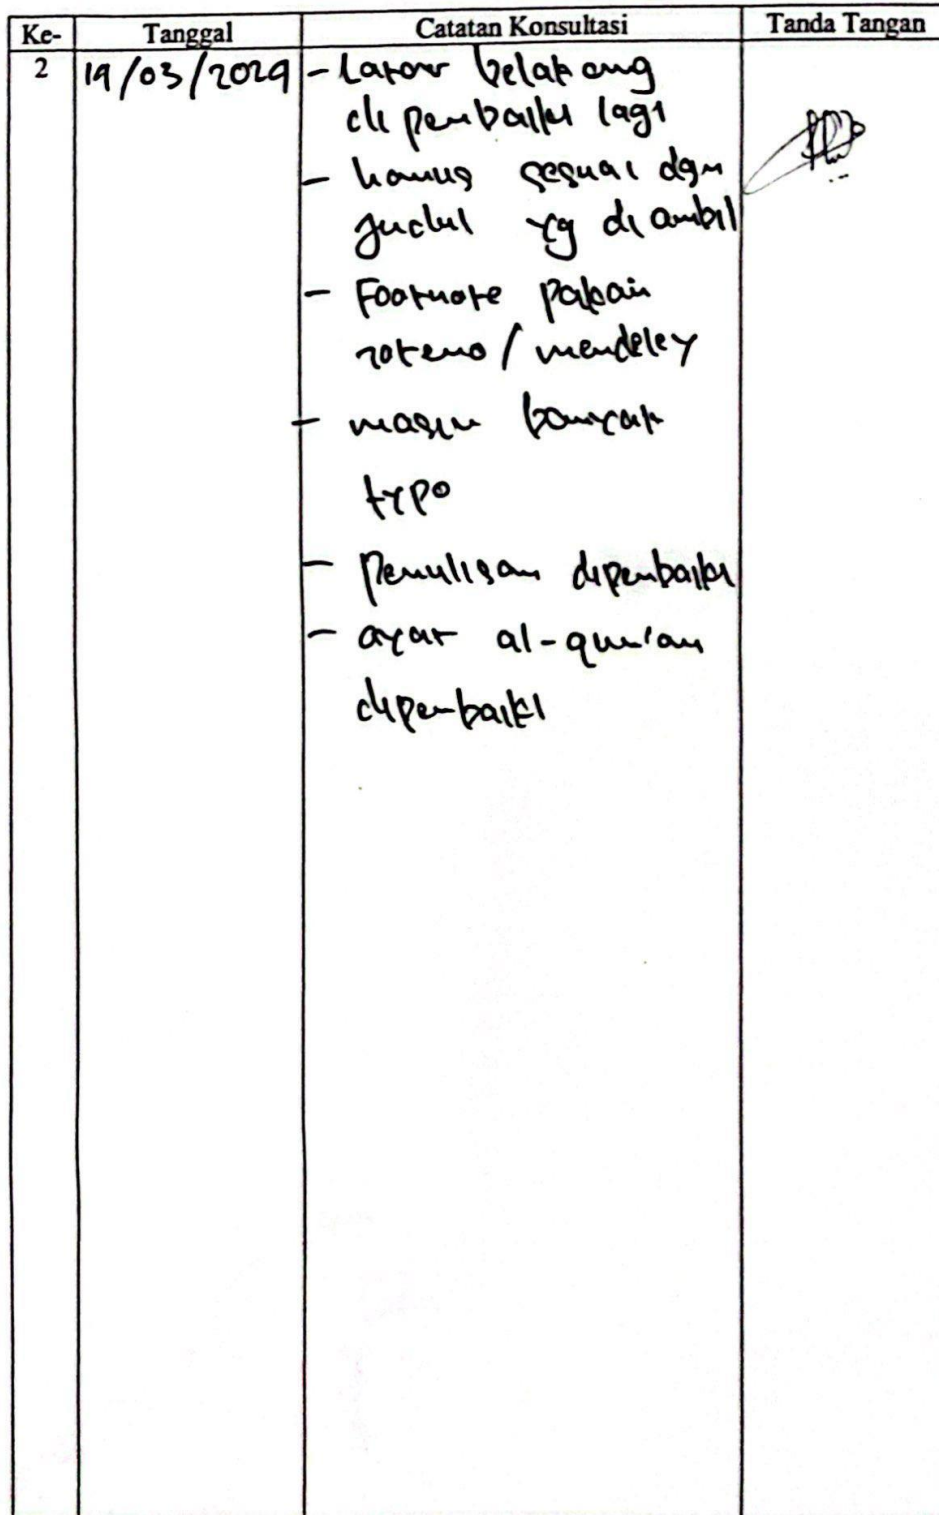 Ke- Tanggal Catatan Konsultasi Tanda Tangan
2 19/03/2024 - Latar belakang
di perbaiki lagi
- harus sesuai dgn
judul yg di ambil
- Footnote pakai
zotero / mendeley
- masih banyak
typo
- Penulisan diperbaiki
- ayat al-qur'an
diperbaiki